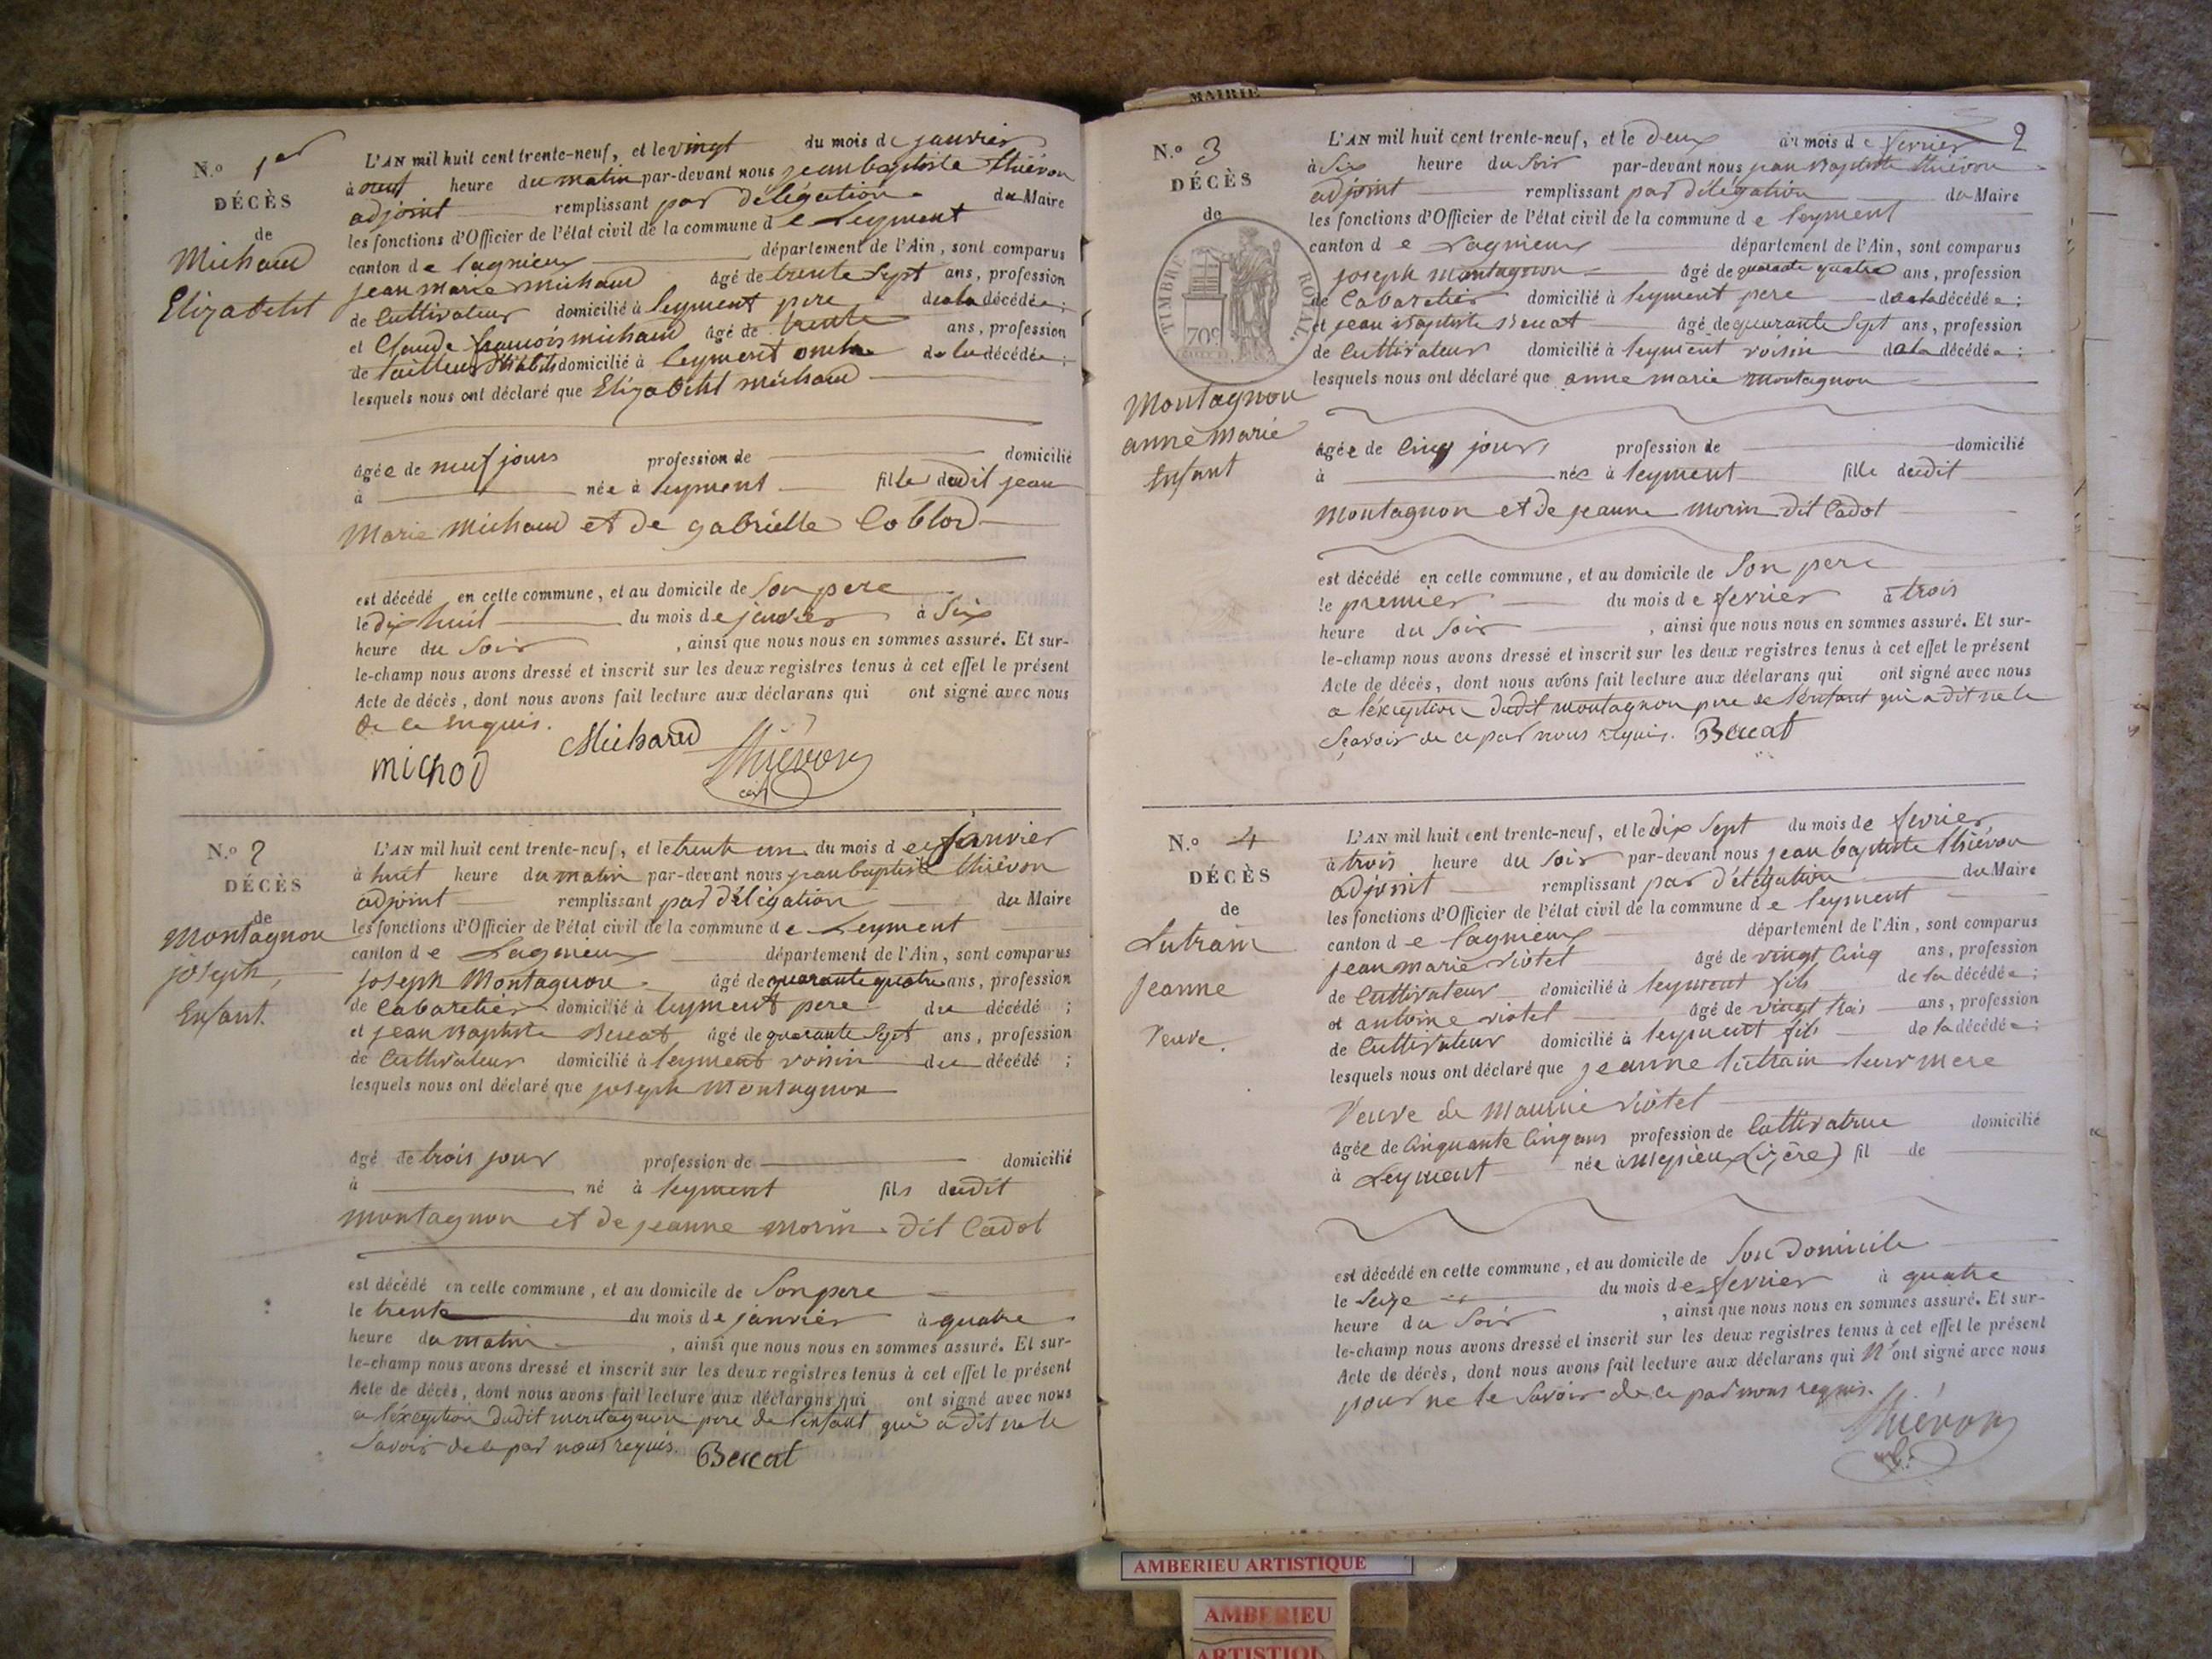 N.o 1er
DÉCÈS
de
Michaud
Elizabeht
L'AN mil huit cent trente-neuf, et le vingt du mois de janvier
à neuf heure du matin par-devant nous jean baptiste thiévon
adjoint remplissant par délégation du Maire
les fonctions d'Officier de l'état civil de la commune de Leyment
canton de lagnieux département de l'Ain, sont comparus
jean marie michaud âgé de trente sept ans, profession
de Cultivateur domicilié à leyment pere de la décédée;
et Claude françois michaud âgé de trente ans, profession
de tailleur d'habits domicilié à leyment oncle de la décédée;
lesquels nous ont déclaré que Elizabeht michaud
âgée de neuf jours profession de domicilié
à née à leyment fille dudit jean
Marie Michaud et de gabrielle Coblod
est décédé en cette commune, et au domicile de Son pere
le dix huit du mois de janvier à Six
heure du Soir, ainsi que nous nous en sommes assuré. Et sur-
le-champ nous avons dressé et inscrit sur les deux registres tenus à cet effet le présent
Acte de décès, dont nous avons fait lecture aux déclarans qui ont signé avec nous
de ce enquis.
michod Michaud Thiévon
N.o 2
DÉCÈS
de
Montagnon
joseph,
Enfant.
L'AN mil huit cent trente-neuf, et le trente un du mois de janvier
à huit heure du matin par-devant nous jean baptiste thiévon
adjoint remplissant par délégation du Maire
les fonctions d'Officier de l'état civil de la commune de Leyment
canton de Lagnieux département de l'Ain, sont comparus
joseph Montagnon âgé de quarante quatre ans, profession
de Cabaretier domicilié à leyment pere du décédé;
et jean Baptiste Beucat âgé de quarante Sept ans, profession
de Cultivateur domicilié à leyment voisin du décédé;
lesquels nous ont déclaré que joseph Montagnon
âgé de trois jour profession de domicilié
à né à leyment fils dudit
montagnon et de jeanne morin dit Cadot
est décédé en cette commune, et au domicile de Son pere
le trente du mois de janvier à quatre
heure du matin, ainsi que nous nous en sommes assuré. Et sur-
le-champ nous avons dressé et inscrit sur les deux registres tenus à cet effet le présent
Acte de décès, dont nous avons fait lecture aux déclarans qui ont signé avec nous
a l'éxception dudit montagnon pere de l'enfant qui a dit ne le
Savoir de ce par nous requis. Beucat
MAIRIE
2
N.o 3
DÉCÈS
de
TIMBRE ROYAL
70c
Montagnon
anne Marie
Enfant
L'AN mil huit cent trente-neuf, et le deux du mois de fevrier
à Six heure du Soir par-devant nous jean Baptiste thiévon
adjoint remplissant par délégation du Maire
les fonctions d'Officier de l'état civil de la commune de leyment
canton de Lagnieux département de l'Ain, sont comparus
joseph montagnon âgé de quarante quatre ans, profession
de Cabaretier domicilié à leyment pere de la décédée;
et jean Baptiste Beucat âgé de quarante Sept ans, profession
de Cultivateur domicilié à leyment voisin de la décédée;
lesquels nous ont déclaré que anne marie montagnon
âgée de Cinq jours profession de domicilié
à née à leyment fille dudit
Montagnon et de jeanne morin dit Cadot
est décédé en cette commune, et au domicile de Son pere
le premier du mois de fevrier à trois
heure du Soir, ainsi que nous nous en sommes assuré. Et sur-
le-champ nous avons dressé et inscrit sur les deux registres tenus à cet effet le présent
Acte de décès, dont nous avons fait lecture aux déclarans qui ont signé avec nous
a l'éxception dudit montagnon pere de l'enfant qui a dit ne le
Sçavoir de ce par nous requis. Beucat
N.o 4
DÉCÈS
de
Lutrain
Jeanne
Veuve.
L'AN mil huit cent trente-neuf, et le dix Sept du mois de fevrier
à trois heure du Soir par-devant nous jean baptiste thiévon
adjoint remplissant par délégation du Maire
les fonctions d'Officier de l'état civil de la commune de leyment
canton de lagnieux département de l'Ain, sont comparus
jean marie viotet âgé de vingt Cinq ans, profession
de Cultivateur domicilié à leyment fils de la décédée;
et antoine viotet âgé de vingt trois ans, profession
de Cultivateur domicilié à leyment fils de la décédée;
lesquels nous ont déclaré que jeanne lutrain leur mere
Veuve de Maurice viotet
âgée de Cinquante Cinq ans profession de Cultivatrice domicilié
à Leyment née à Meyrieu (izère) fil de
est décédé en cette commune, et au domicile de Son Domicile
le Seize du mois de fevrier à quatre
heure du Soir, ainsi que nous nous en sommes assuré. Et sur-
le-champ nous avons dressé et inscrit sur les deux registres tenus à cet effet le présent
Acte de décès, dont nous avons fait lecture aux déclarans qui N'ont signé avec nous
pour ne le Savoir de ce par nous requis.
Thiévon
AMBERIEU ARTISTIQUE
AMBERIEU
ARTISTIQU